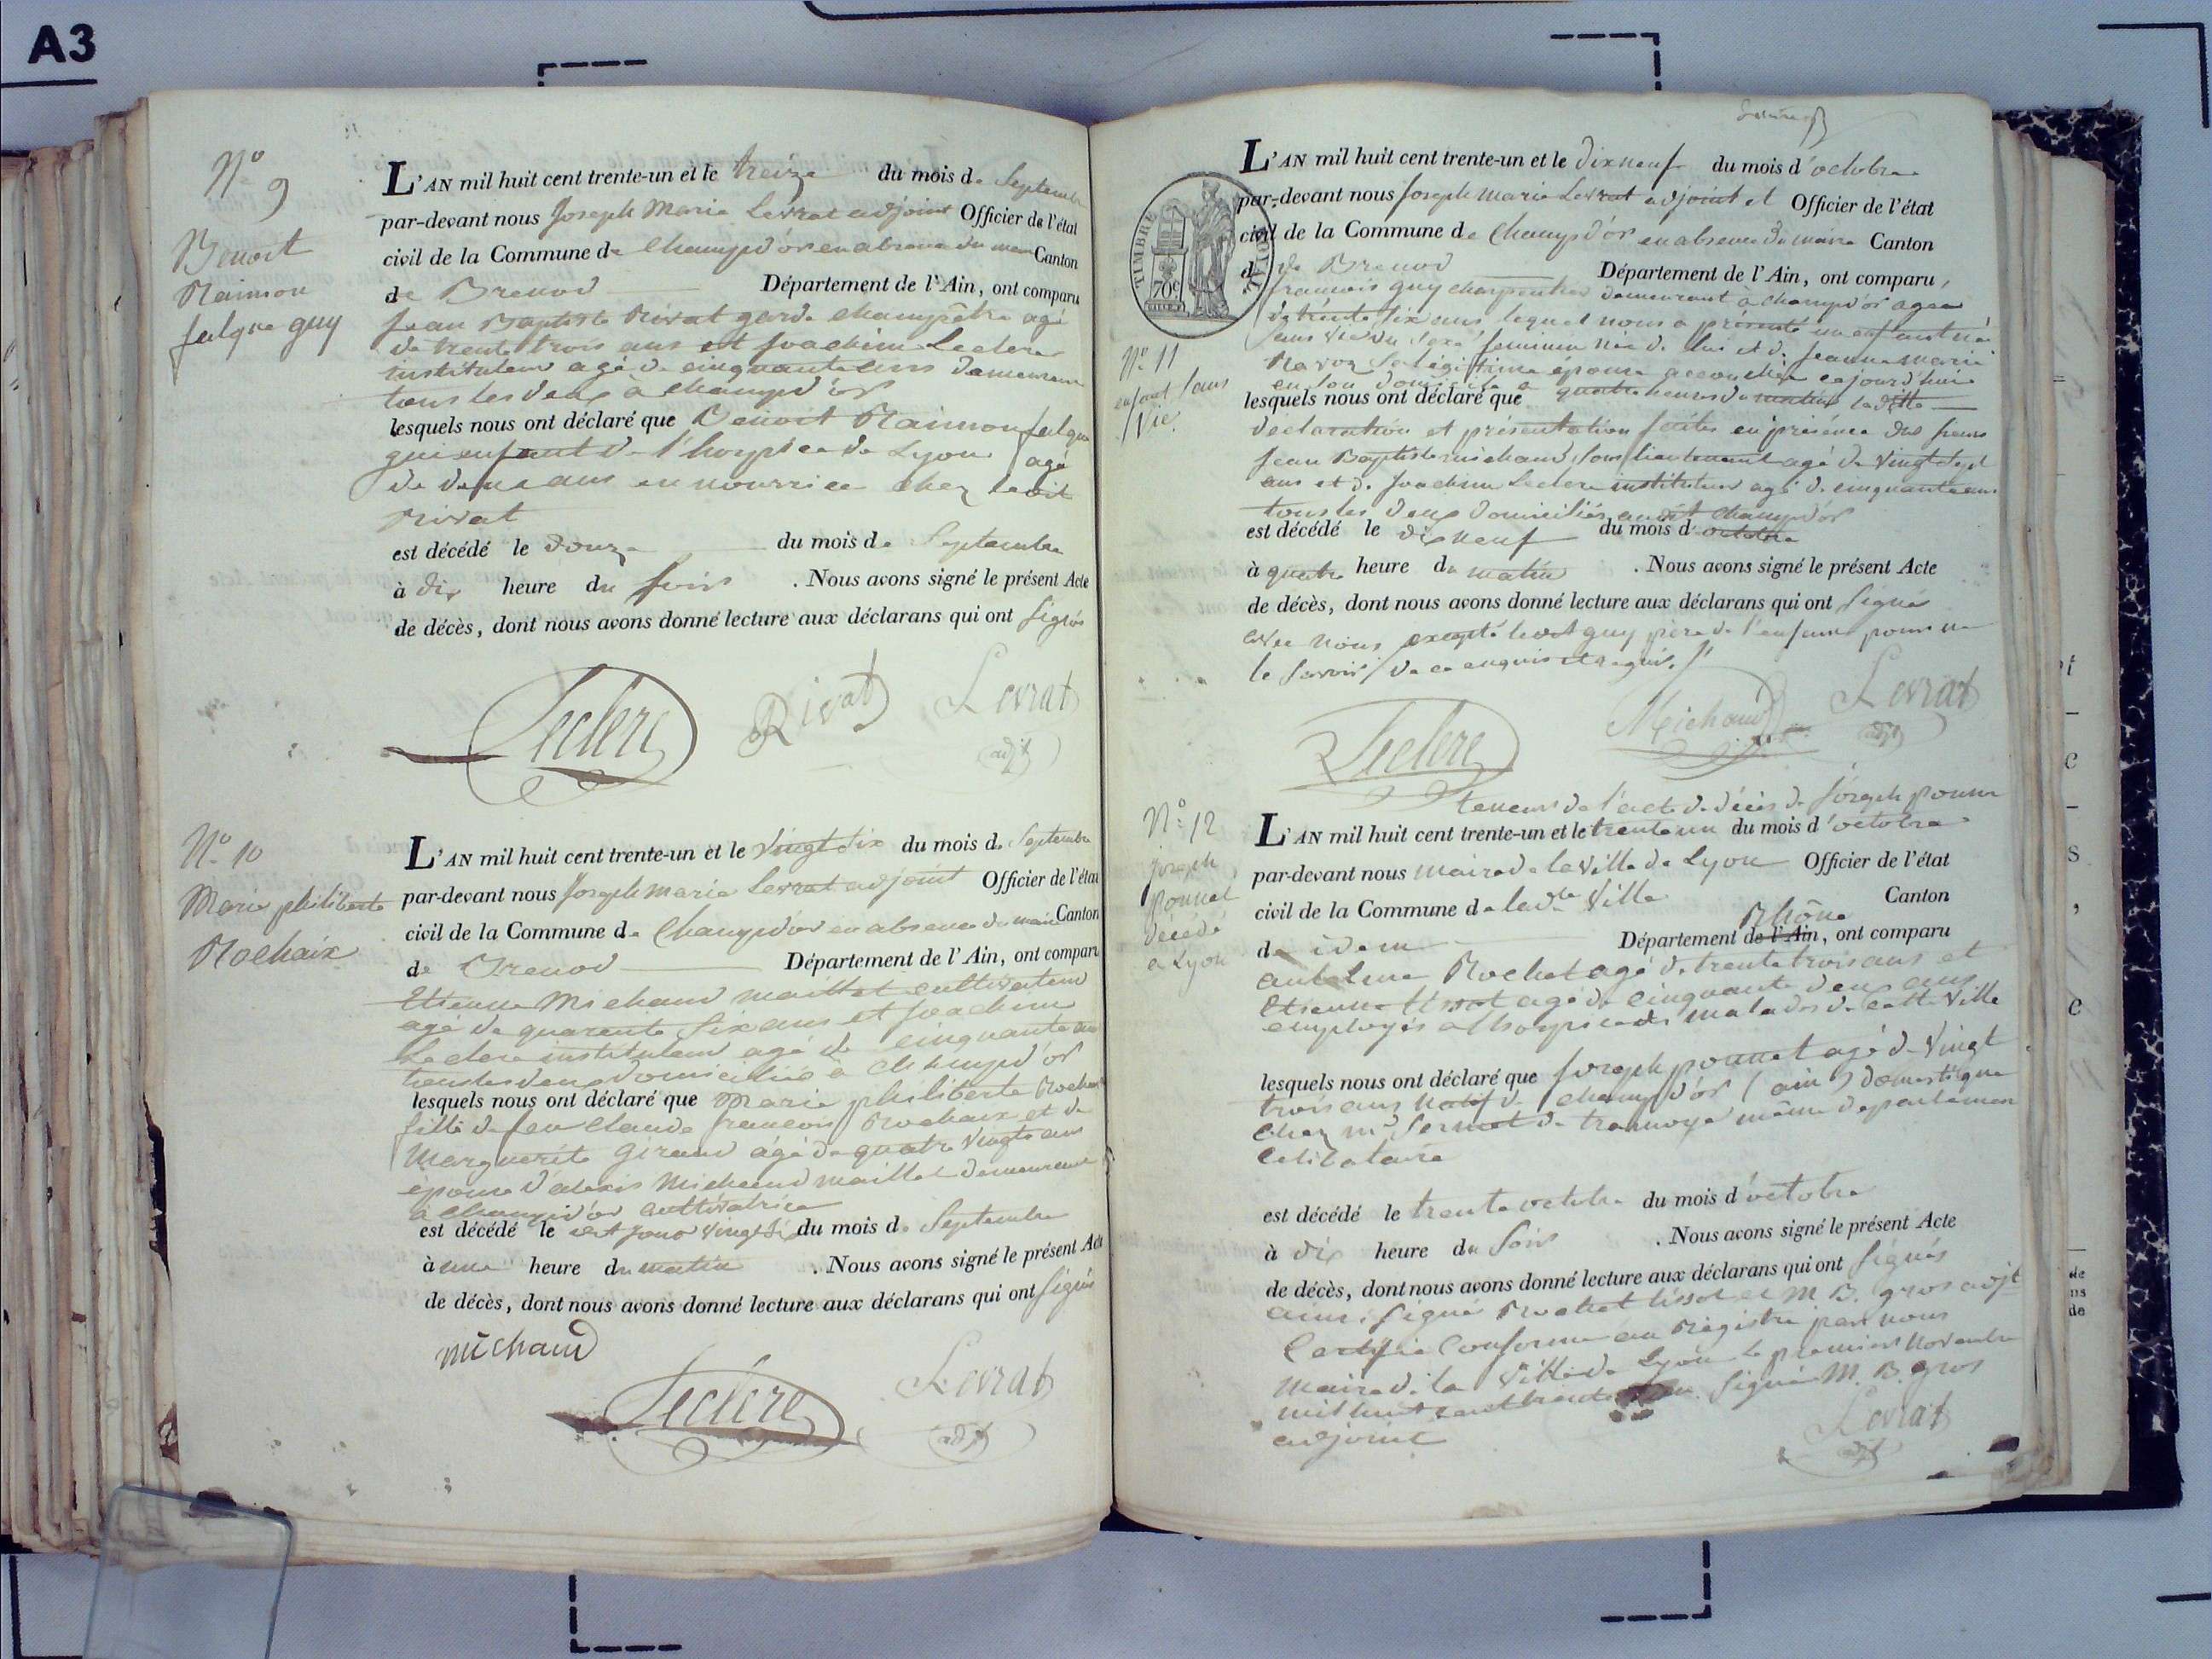 A3
N° 9
Benoit
Raimon
falque guy
L'AN mil huit cent trente-un et le treize du mois de Septembre
par-devant nous Joseph Marie Levrat adjoint Officier de l'état
civil de la Commune de Champd'or en absence du maire Canton
de Brenod Département de l'Ain, ont comparu
Jean Baptiste Rivat garde champêtre agé
de trente trois ans et Joachim Leclerc
instituteur agé de cinquante ans demeurant
tous les deux à champd'or
lesquels nous ont déclaré que Benoit Raimon falque
guy enfant de l'hospice de Lyon agé
de deux ans en nourrice chez ledit
Rivat
est décédé le douze du mois de Septembre
à dix heure du soir . Nous avons signé le présent Acte
de décès, dont nous avons donné lecture aux déclarans qui ont signés
Leclerc Rivat Levrat
adjt
N° 10
Marie philiberte
Rochaix
L'AN mil huit cent trente-un et le vingt six du mois de Septembre
par-devant nous Joseph marie Levrat adjoint Officier de l'état
civil de la Commune de Champd'or en absence du maire Canton
de Brenod Département de l'Ain, ont comparu
Etienne Michaud maillet cultivateur
agé de quarente six ans et Joachim
Leclerc instituteur agé de cinquante ans
tous les deux domiciliés à champd'or
lesquels nous ont déclaré que Marie philiberte Rochaix
fille de feu Claude françois Rochaix et de
Marguerite Giraud agé de quatre vingts ans
épouse d'alexis Michaud maillet demeurant
à champd'or cultivatrice
est décédé le cet jour vingt six du mois de Septembre
à une heure du matin . Nous avons signé le présent Acte
de décès, dont nous avons donné lecture aux déclarans qui ont signés
michaud
Leclerc Levrat
adjt
TIMBRE ROYAL
70c
L'AN mil huit cent trente-un et le dix neuf du mois d'octobre
par-devant nous Joseph marie Levrat adjoint et Officier de l'état
civil de la Commune de Champd'or en absence du maire Canton
d de Brenod Département de l'Ain, ont comparu,
francois guy charpentier demeurant à champd'or agée
de trente six ans lequel nous a présenté un enfant né
sans vie du sexe feminin née de lui et de Jeanne marie
Ravoz sa légitime épouse accouchée cejourd'hui
en son domicile a quatre heures du matin ladite
lesquels nous ont déclaré que
N° 11
enfant sans
vie
declaration et présentation faites en présence des sieurs
Jean Baptiste michaud, sous lieutenant agé de vingt sept
ans et de Joachim Leclerc instituteur agé de cinquante ans
tous les deux domiciliés audit champd'or
est décédé le dix neuf du mois d'octobre
à quatre heure du matin . Nous avons signé le présent Acte
de décès, dont nous avons donné lecture aux déclarans qui ont signés
avec nous excepté ledit guy père de l'enfant pour ne
le savoir de ce enquis et requis.
Leclerc Michaud Levrat
adjt
teneur de l'acte de décès de Joseph ponnet
N° 12
joseph
ponnet
décédé
a Lyon
L'AN mil huit cent trente-un et le trente un du mois d'octobre
par-devant nous maire de la ville de Lyon Officier de l'état
civil de la Commune de ladte ville Canton
de idem Département de l'Ain, ont comparu
Rhône
antelme Rochet agé de trente trois ans et
Etienne tissot agé de cinquante deux ans
employés a l'hospice des malades de cette ville
lesquels nous ont déclaré que joseph ponnet agé de vingt
trois ans natif de champd'or (ain) domestique
chez mr Sernot de tramoye même departement
celibataire
est décédé le trente octobre du mois d'octobre
à dix heure du soir . Nous avons signé le présent Acte
de décès, dont nous avons donné lecture aux déclarans qui ont signés
ainsi signé Rochet tissot et M. B. gros adjt
Certifié conforme au Régistre par nous
Maire de la ville de Lyon le premier Novembre
mil huit cent trente un. signé M. B. gros
adjoint
Levrat
adjt